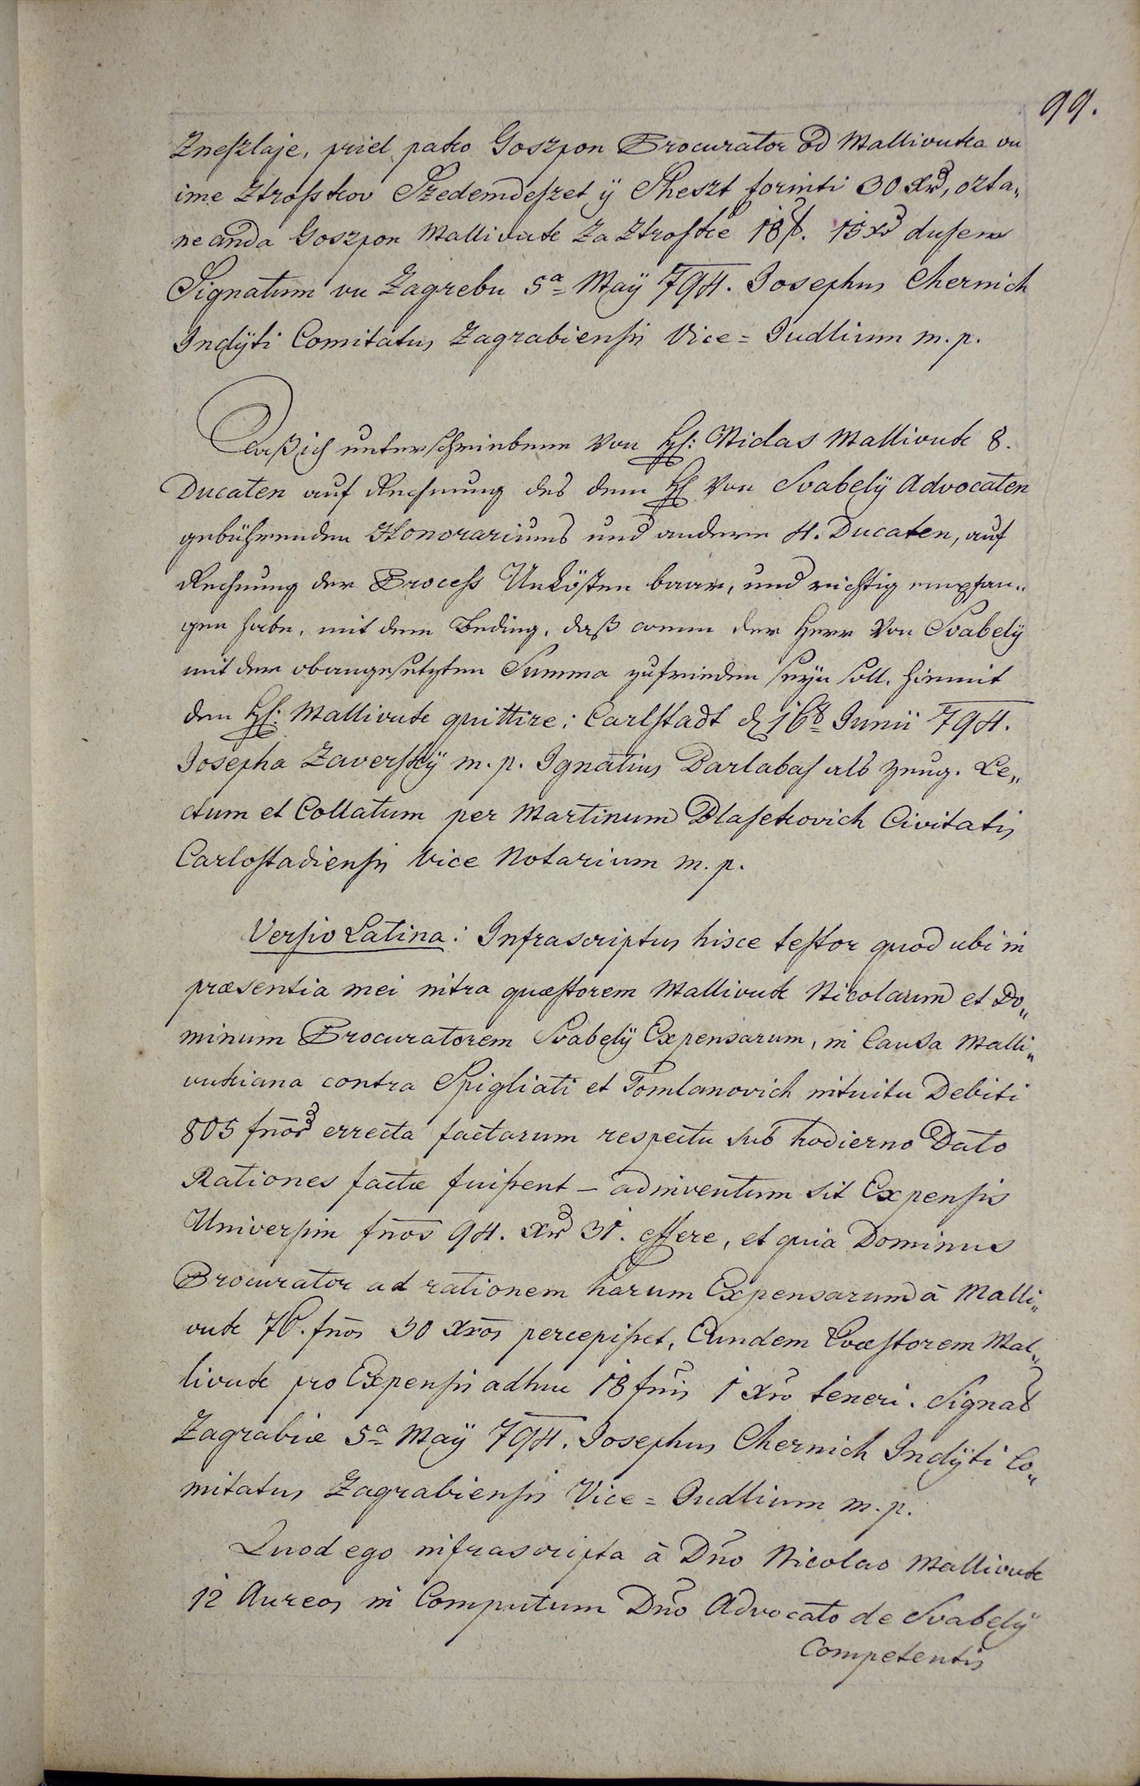 99.
Zneszlaje, priel pako Goszpon Procurator od Mallivuka vu
ime Ztrosskov Szedemdeszet ÿ Sheszt forinti 30 xr, ozta„
ne anda Goszpon Mallivuk za Ztroske 18 f. 15 xr dusen
Signatum vu Zagrebu 5a May 794. Josephus Chernich
Inclÿti Comitatus Zagrabiensis Vice = Judlium m. p.
Daß ich unterschriebene von H: Niclas Mallivuk 8.
Ducaten auf Rechnung des dem H von Svabelÿ Advocaten
gebührenden Honorariums und andere 4. Ducaten, auf
Rechnung der Process Unkösten baar, und richtig empfan„
gen habe, mit dem Beding, daß wenn der Herr von Svabelÿ
mit der obangesetzten Summa zufrieden seyn soll. hiemit
den H: Mallivuk quittire: Carlstadt d 16t Junii 794.
Josepha Zaverskÿ m. p. Ignatius Darlabas als Zeug. Le„
ctum et Collatum per Martinum Blasekovich Civitatis
Carlostadiensis Vice Notarium m. p.
Versio Latina: Infrascriptus hisce testor quod ubi in
præsentia mei intra quæstorem Mallivuk Nicolaum et Do„
minum Procuratorem Svabelÿ Expensarum, in Causa Malli„
vukiana contra Spigliati et Tomlanovich intuitu Debiti
805 fnor errecta factarum respectu sub hodierno Dato
Rationes factæ fuissent – adinventum sit Expensis
Universim fnos 94. Xr 31. essere, et quia Dominus
Procurator ad rationem harum Expensarum à Malli„
vuk 76. fnos 30 Xros percepisset, Eundem Quæstorem Mal„
livuk pro Expensis adhuc 18 fnis 1 Xro teneri. Signat
Zagrabiæ 5a May 794. Josephus Chernich Inclÿti Co„
mitatus Zagrabiensis Vice = Judlium m. p.
Quod ego infrascripta à Dno Nicolao Mallivuk
12 Aureos in Computum Dno Advocato de Svabelÿ
Competentis